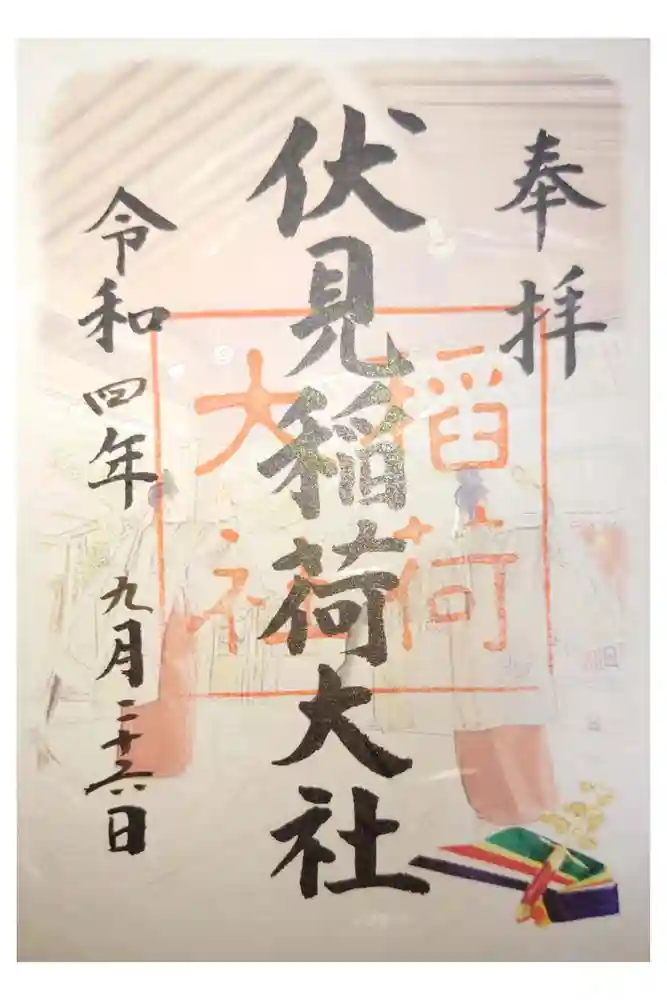 奉拝
伏見稲荷大社
稲荷
大社
令和四年九月二十六日